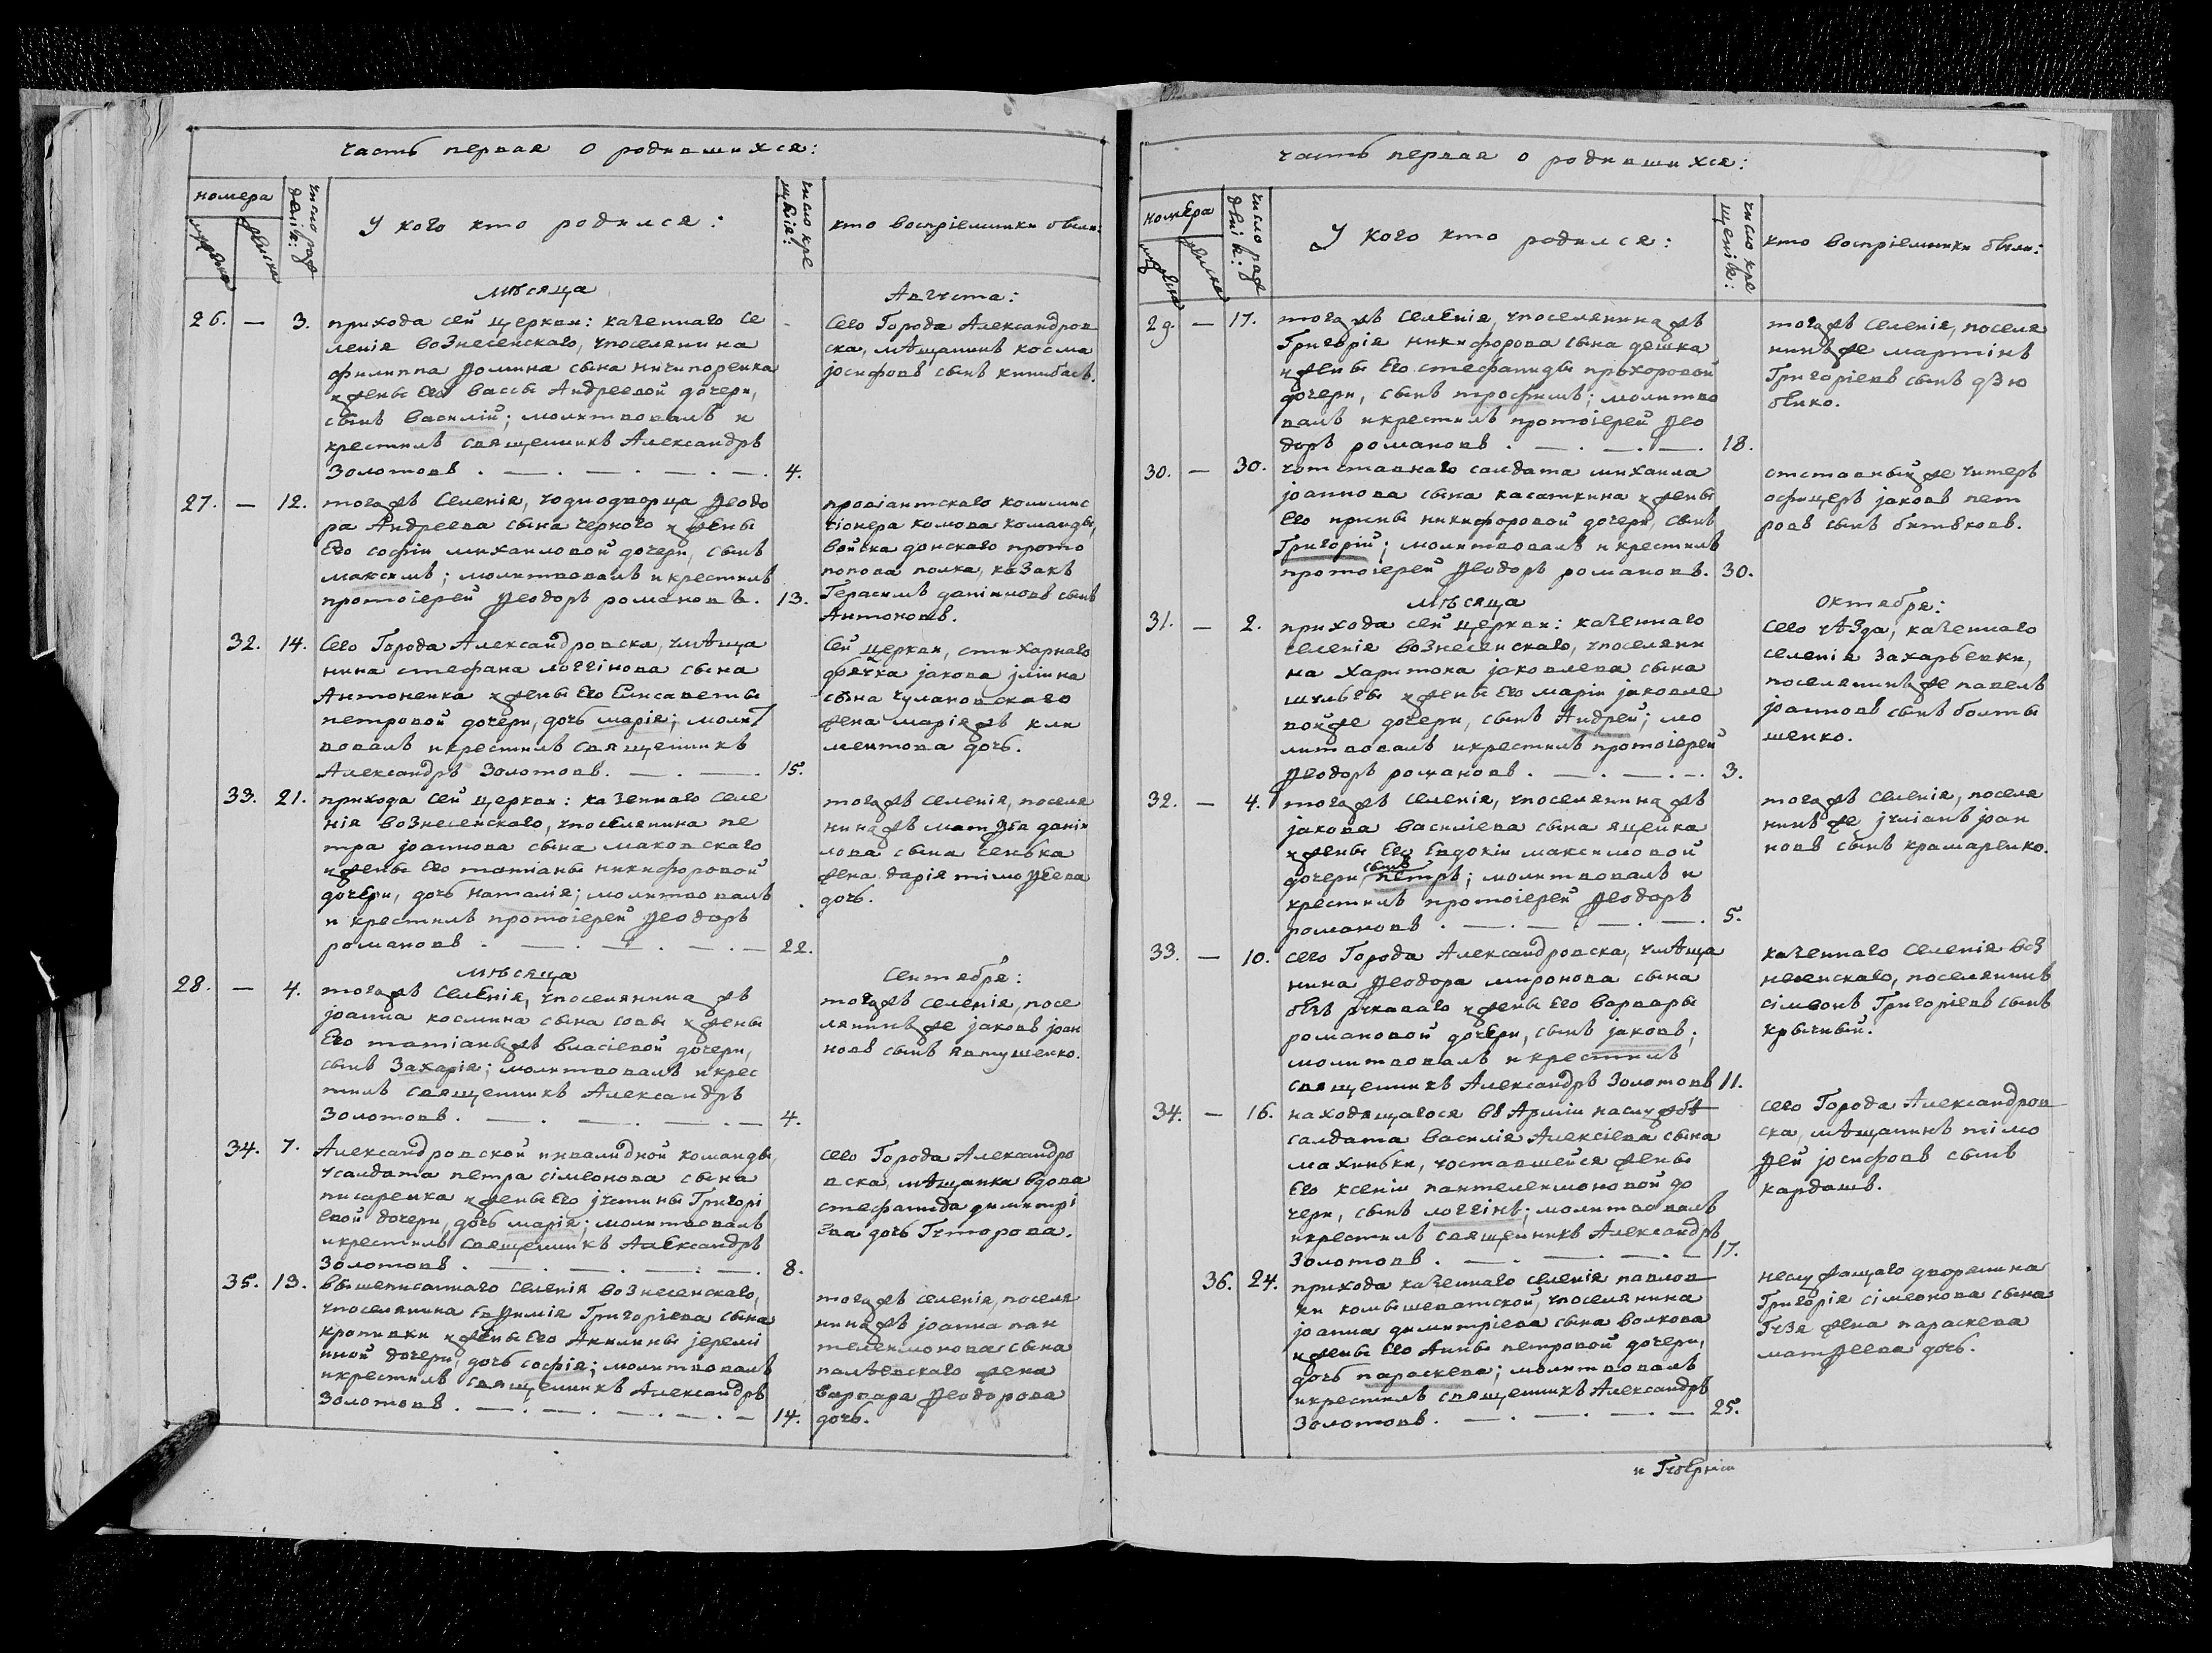 часть первая о родившихся:
номера
мужеска
женска
число рождениꙗ:
У кого кто родился:
число крещениꙗ:
кто воспріемники были:
мѣсяца
Августа:
26. — 3. прихода сей церкви: казеннаго се
ленія вознесенскаго, упоселянина
филиппа Ѳомина сына ничипоренка
ижены Его вассы Андреевой дочери,
сынъ василій; молитвовалъ и
крестилъ священникъ Александръ
Золотовъ. — . — . — . — . 4.
Сего Города Александров
ска, мѣщанинъ косма
јосифовъ сынъ кишбасъ.
27. — 12. тогожъ Селенія, уоднодворца Ѳеодо
ра Андреева сына чернаго ижены
Его софіи михаиловой дочери, сынъ
максимъ; молитвовалъ икрестилъ
протоіерей Ѳеодоръ романовъ. 13.
провіантскаго коммис
сіонера комова команды,
войска донскаго прото
попова полка, казакъ
Герасимъ даніиловъ сынъ
Антоновъ.
32. 14. Сего Города Александровска, умѣща
нина стефана логгінова сына
Антоненка ижены Его Елисаветы
петровой дочери, дочь марія; молит
вовалъ икрестилъ священникъ
Александръ Золотовъ. — . — . 15.
Сей церкви, стихарнаго
дьячка јакова јліина
сына чулановскаго
жена маріяжъ кли
ментова дочь.
33. 21. прихода сей церкви: казеннаго селе
нія вознесенскаго, упоселянина пе
тра јоаннова сына маковскаго
ижены Его татіаны никифоровой
дочери, дочь наталія; молитвовалъ
и крестилъ протоіерей Ѳеодоръ
романовъ. — . — . — . — 22.
тогожъ селенія, поселя
нинажъ матѳеа даніи
лова сына сенька
жена дарія тімоѳеева
дочь.
мѣсяца
Сентября:
28. — 4. тогожъ Селенія, упоселянинажъ
јоанна космина сына совы ижены
Его татіаныжъ власіевой дочери,
сынъ Захарія; молитвовалъ икрес
тилъ священникъ Александръ
Золотовъ. — . — . — . — 4.
тогожъ селенія, посе
лянинъже јаковъ јоан
новъ сынъ явтушенко.
34. 7. Александровской инвалидной команды,
усалдата петра сімеонова сына
писаренка ижены Его јустины Григорі
евой дочери, дочь марія; молитвовалъ
икрестилъ священникъ Александръ
Золотовъ. — . — . — . — . 8.
сего Города Александро
вска, мѣщанка вдова
стефанида димитрі
Эва дочь Гуторова.
35. 13. вышеписаннаго Селенія вознесенскаго,
упоселянина Евѳимія Григоріева сына
кропивки ижены Его Акилины јеремі
иной дочери, дочь софія; молитвовалъ
икрестилъ священникъ Александръ
Золотовъ. — . — . — . — . — 14.
тогожъ селенія, поселя
нинажъ јоанна пан
телеимонова сына
палѣевскаго жена
варвара Ѳеодорова
дочь.
часть первая о родившихся:
номера
мужеска
женска
число рождениꙗ:
У кого кто родился:
число крещениꙗ:
кто воспріемники были:
29. — 17. тогожъ Селенія, упоселянинажъ
Григорія никифорова сына дешка
ижены Его стефаниды прохоровой
дочери, сынъ трофимъ; молитво
валъ икрестилъ протоіерей Ѳео
доръ романовъ. — . — . — . 18.
тогожъ селенія, поселя
нинъже мартінъ
Григоріевъ сынъ дзю
бенко.
30. — 30. уотставнаго салдата михаила
јоаннова сына касаткина ижены
Его ирины никифоровой дочери, сынъ
Григорій; молитвовалъ икрестилъ
протоіерей Ѳеодоръ романовъ. 30.
отставныйже унтеръ
офицеръ јаковъ пет
ровъ сынъ битьковъ.
мѣсяца
Октября:
31. — 2. прихода сей церкви: казеннаго
селенія вознесенскаго, упоселяни
на харитона јаковлева сына
шульги ижены Его маріи јаковле
войже дочери, сынъ Андрей; мо
литвовалъ икрестилъ протоіерей
Ѳеодоръ романовъ. — . — . — . 3.
сего уѣзда, казеннаго
селенія Захарьевки,
поселянинъже павелъ
јоанновъ сынъ болты
шенко.
32. — 4. тогожъ селенія, упоселянинажъ
јакова василіева сына яценка
ижены Его Евдокіи максимовой
дочери, сынъ петръ; молитвовалъ и
крестилъ протоіерей Ѳеодоръ
романовъ. — . — . — . — . 5.
тогожъ селенія, поселя
нинъже јуліанъ јоан
новъ сынъ крамаренко.
33. — 10. сего Города Александровска, умѣща
нина Ѳеодора миронова сына
безрукаваго ижены Его варвары
романовой дочери, сынъ јаковъ;
молитвовалъ икрестилъ
священникъ Александръ Золотовъ 11.
казеннаго Селенія воз
несенскаго, поселянинъ
сімеонъ Григоріевъ сынъ
кручный.
34. — 16. находящагося въ Арміи наслужбѣ
салдата василія Алексіева сына
махиньки, уоставшейся жены
Его ксеніи пантелеимоновой до
чери, сынъ логгінъ; молитвовалъ
икрестилъ священникъ Александръ
Золотовъ. — . — . — . — 17.
сего Города Александров
ска, мѣщанинъ тімо
ѳей јосифовъ сынъ
кардашъ.
36. 24. прихода казеннаго селенія павлов
ки комышеватской, упоселянина
јоанна димитріева сына волкова
ижены Его Анны петровой дочери,
дочь параскева; молитвовалъ
икрестилъ священникъ Александръ
Золотовъ. — . — . — . — 25.
неслужащаго дворянина
Григорія сімеонова сына
Гузя жена параскева
матѳеева дочь.